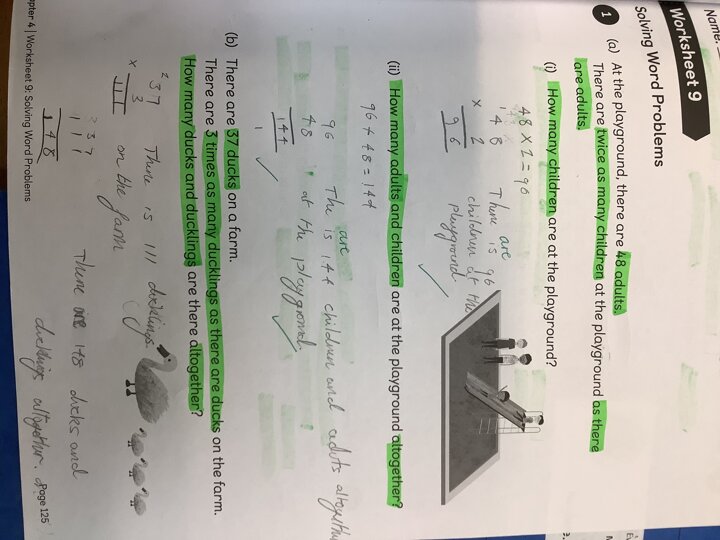 Name:
Worksheet 9
Solving Word Problems
1 (a) At the playground, there are 48 adults.
There are twice as many children at the playground as there
are adults.
(i) How many children are at the playground?
48 × 2 = 96
1
4 8
× 2
9 6
There is are 96
children at the
playground
(ii) How many adults and children are at the playground altogether?
96 + 48 = 144
96
48
144
1
The is are 144 children and aduts altogether
at the playground.
(b) There are 37 ducks on a farm.
There are 3 times as many ducklings as there are ducks on the farm.
How many ducks and ducklings are there altogether?
2
37
× 3
111
There is 111 ducklings
on the farm
37
111
148
There are 148 ducks and
ducklings altogether.
Chapter 4 | Worksheet 9: Solving Word Problems
Page 125